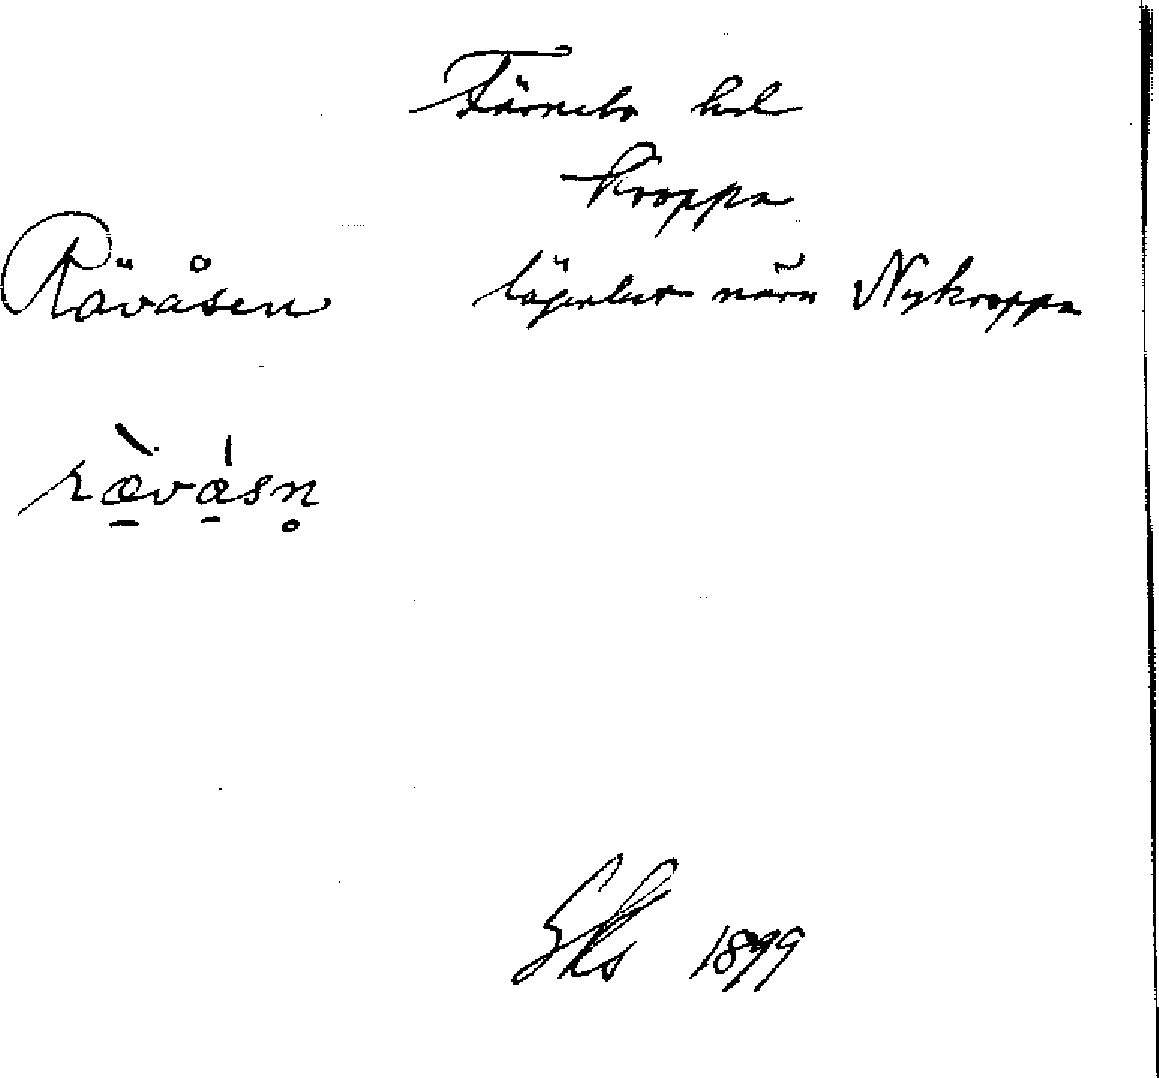 Färnebo hd
Kroppa
Rävåsen lägenhet nära Nykroppa
rævåsn̥
1899